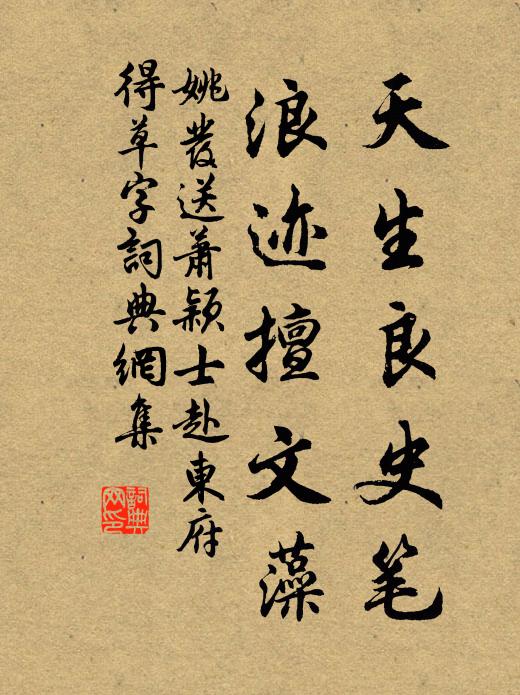 天生良史笔
浪迹擅文藻
姚發送蕭颖士赴東府
得草字詞典網集
詞典网印